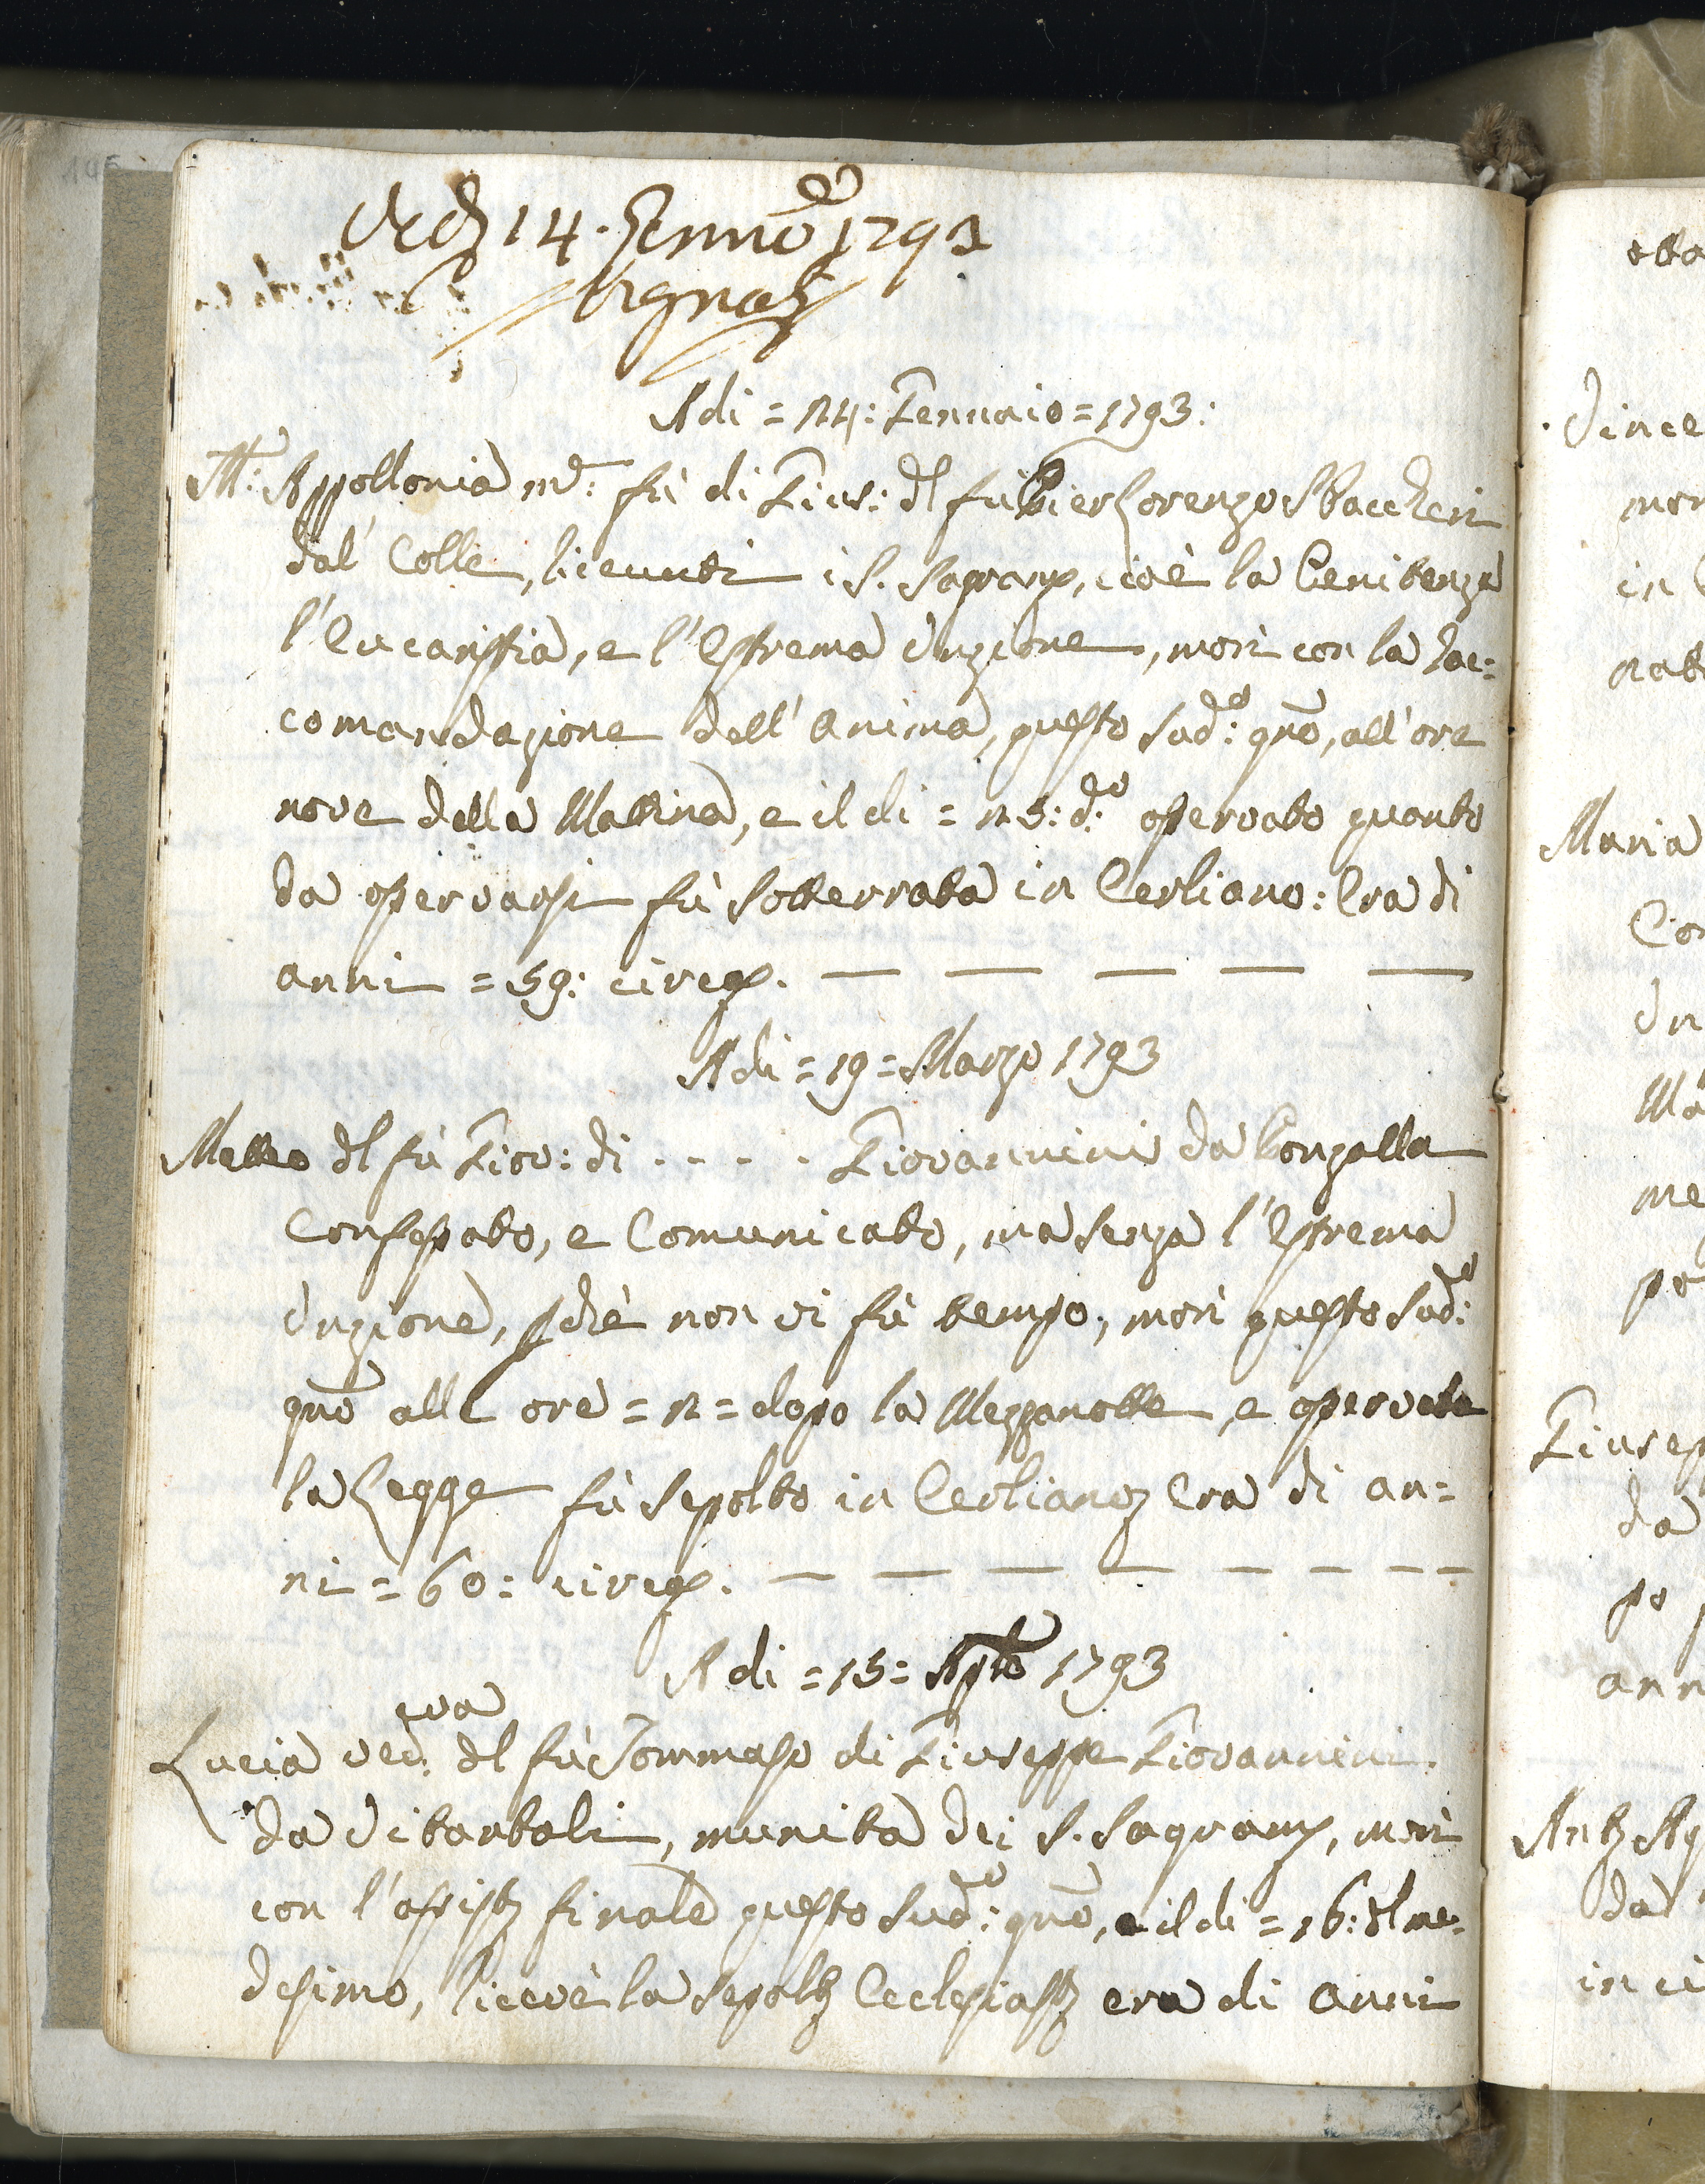 14. Genno 1793
Adi = 24: Gennaio = 1793:
M: Appollonia m.e: fù di Gius: dl fù Pier Lorenzo Sbaccheri
dal' Colle, riceuuti i S. Sagram, cioè la Penitenza
l'Eucaristia, e l'Estrema Unzione, morì con la Rac=
comandazione dell' anima, questo sud:o gno, all'ore
nove della Mattina, e il di = 25: d:o osservato quanto
da osservarsi fù sotterrata in Cerliano: Era di
anni = 59: circa.
Adi = 19 = Marzo 1793
Matteo dl fù Giov: di . . . . . Giovannini da Conzalla
Confessato, e Comunicato, ma senza l'Estrema
Unzione, pchè non vi fù tempo; morì questo sud:o
gno all ore = 2 = dopo la Mezzanotte, e osservata
la Legge fù sepolto in Cerliano Era di an=
ni = 60: circa.
Adi = 15: Aple 1793
Lucia ved:ova dl fù Tommaso di Giuseppe Giovannini.
da Vitartoli, munita dei S. Sagram, morì
con l'assista finale questo sud:o gno, e il di = 16: dl me=
desimo, riceve la sepolta Eclesiasta era di anni
otto
Vince
mor
in
nat
Maria
Con
Un
Ma
me
po
Giusep
da
po p
ann
Anta Ag
da
in ci